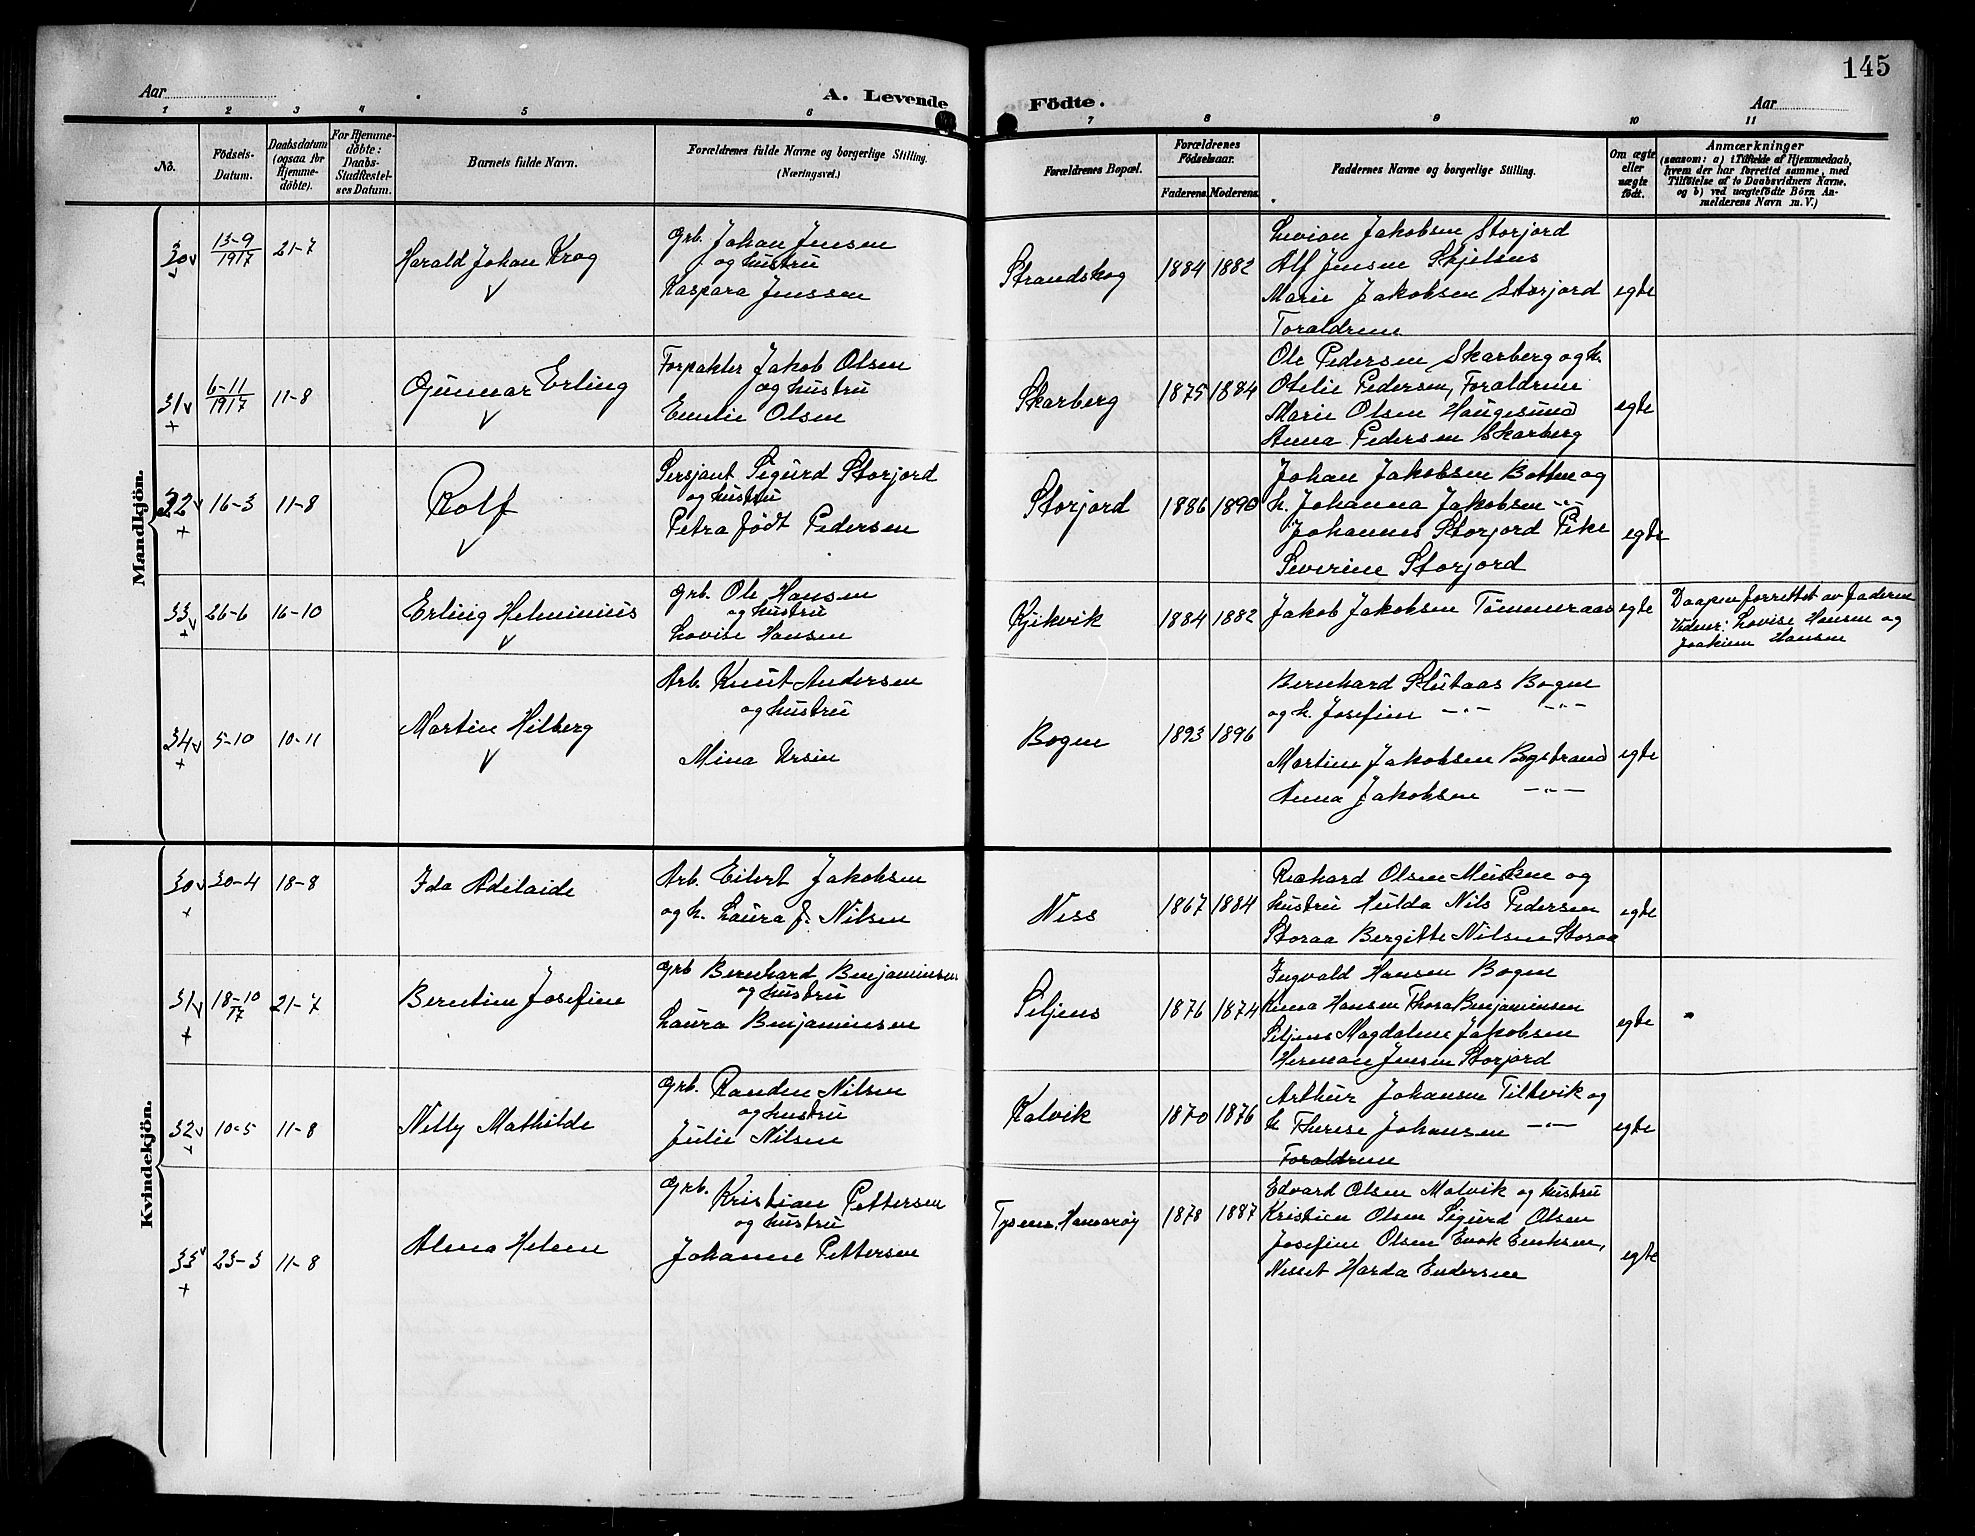 145
Aar
A. Levende
Födte.
Aar
1 2 3 4 5 6 7 8 9 10 11
Nö.
Födsels-
Datum.
Daabsdatum
(ogsaa for
Hjemme-
döbte).
For Hjemme-
döbte:
Daabs-
Stadfæstel-
ses Datum.
Barnets fulde Navn.
Forældrenes fulde Navne og borgerlige Stilling.
(Næringsvei.)
Forældrenes Bopæl.
Forældrenes
Födselsaar.
Faderens. Moderens.
Faddernes Navne og borgerlige Stilling.
Om ægte
eller
uægte
födt.
Anmærkninger
(saasom: a) i Tilfælde af Hjemmedaab,
hvem der har forrettet samme, med
Tilföielse af to Daabsvidners Navne,
og b) ved uægtefödte Börn An-
melderens Navn m. V.)
Mandkjön.
30 13-9
1917 21-7
Harald Johan Krog
Grb. Johan Jensen
og hustru
Kaspara Jenssen
Strandskog 1884 1882
Levion Jakobsen Storjord
Alf Jensen Skjelsnes
Marie Jakobsen Storjord
Foraldrene
egte
31 6-11
1917 11-8
Gunnar Erling
Forpakter Jakob Olsen
og hustru
Emelie Olsen
Skarberg 1875 1884
Ole Pedersen Skarberg og h.
Otelie Pedersen, Foraldrene
Marie Olsen Haugesund
Anna Pedersen Skarberg
egte
32 16-3 11-8
Rolf
Sersjant Sigurd Storjord
og hustru
Petra født Pedersen
Storjord 1886 1890
Johan Jakobsen Botten og
h. Johanna Jakobsen -"-
Johannes Storjord Pike
Severine Storjord
egte
33 26-6 16-10
Erling Helminius
Grb. Ole Hansen
og hustru
Lovise Hansen
Kjikvik 1884 1882
Jakob Jakobsen Tømmeraas
egte
Daapen forrettet av faderen
Vidner: Lovise Hansen og
Joakim Hansen
34 5-10 10-11
Martin Hilberg
Arb. Knut Andersen
og hustru
Mina Ursin
Bogen 1893 1896
Bernhard Slutaas Bogen
og h. Josefine -"- -"-
Martine Jakobsen Bogstrand
Anna Jakobsen -"-
egte
Kvindekjön.
30 30-4 18-8
Ida Adelaide
Arb. Eilert Jakobsen
og h. Laura f. Nilsen
Ness 1867 1884
Richard Olsen Musken og
hustru Hulda Nils Pedersen
Storaa Bergitte Nilsen Storaa
egte
31 18-10
17 21-7
Berntine Josefine
Grb Bernhard Benjaminsen
og hustru
Laura Benjaminsen
Siljens 1876 1874
Ingvald Hansen Bogen
Kima Hansen Thora Benjaminsen
Siljens Magdalene Jakobsen
Herman Jensen Storjord
egte
32 10-5 11-8
Nelly Mathilde
Grb. Randen Nilsen
og hustru
Julie Nilsen
Kalvik 1870 1876
Arthur Johansen Tiltvik og
h Therese Johansen -"-
Foraldrene
egte
33 23-3 11-8
Alma Helene
Grb. Kristian Pettersen
og hustru
Johanne Pettersen
Tysnes, Hamarøy 1878 1887
Edvard Olsen Malvik og hustru
Kristien Olsen Sigurd Olsen
Josefine Olsen Enok Eriksen,
Nesset Harda Endersen
egte